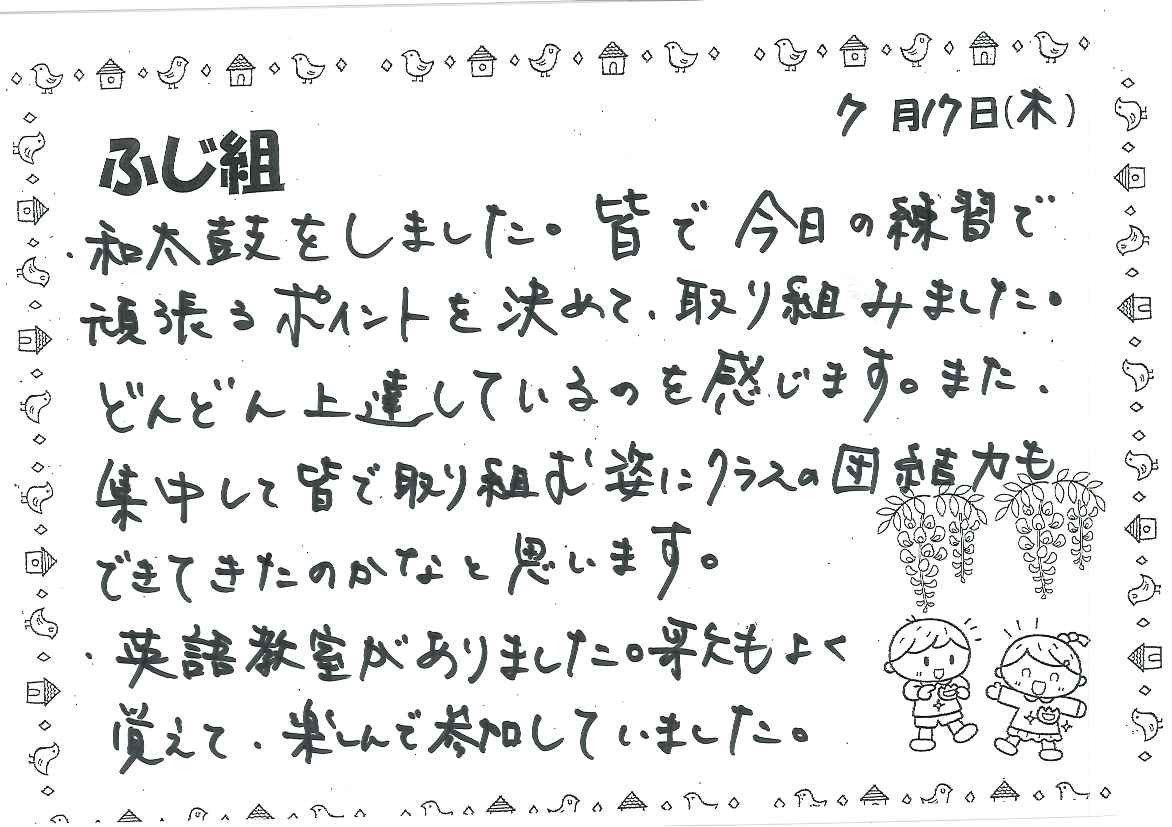 7月17日(木)
ふじ組
・和太鼓をしました。皆で今日の練習で
頑張るポイントを決めて、取り組みました。
どんどん上達しているのを感じます。また、
集中して皆で取り組む姿にクラスの団結力も
できてきたのかなと思います。
・英語教室がありました。歌もよく
覚えて、楽しんで参加していました。